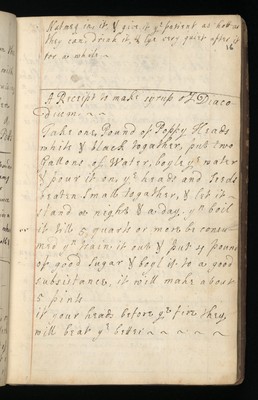 Nutmeg in it, & give it yᵉ patient as hott as
they can drink it, & lye very quiet after it
for a while ~
16
A Receipt to make syrup of Diaco-
dium. ~ ~
Take one Pound of Poppy Heads
white & black togather, put two
Gallons of Water, boyle yᵉ water
& pour it on yᵉ heads and seeds
beaten small togather, & let it
stand a night & a day, yⁿ boil
it till 5 quarts or more be consu-
med yⁿ strain it out & put 4 pound
of good sugar & boil it to a good
subsistance, it will make about
5 pints.
if your heads before yᵉ fire they
will beat yᵉ better ~ ~ ~ ~ ~